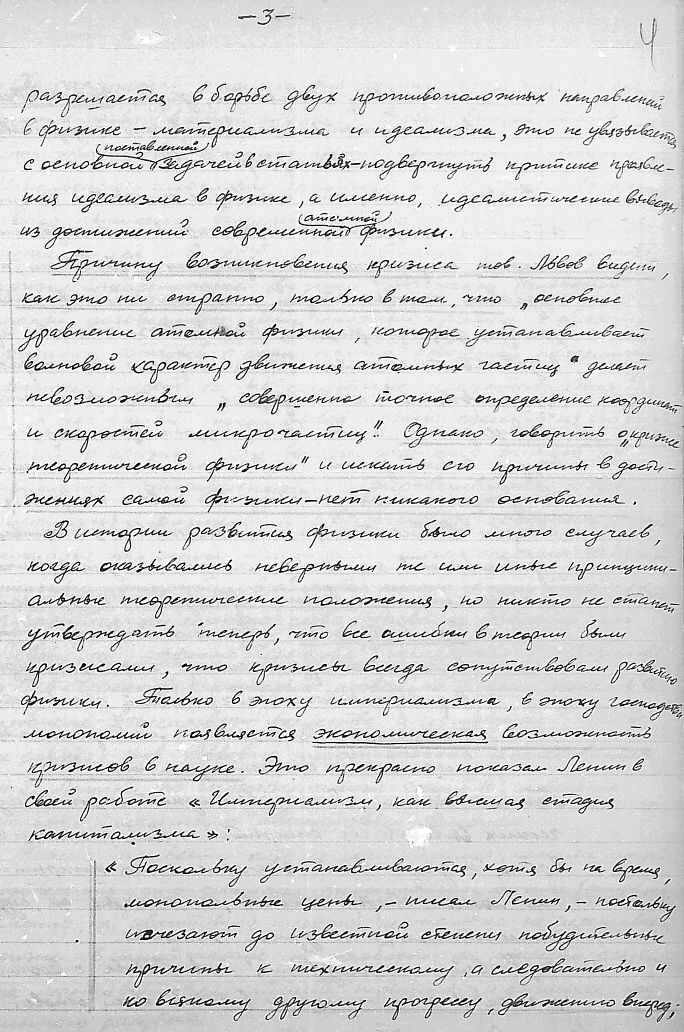 —3—
4
разрешается в борьбе двух противоположных направлений
в физике – материализма и идеализма, это не увязывается
поставленной
с основной задачей в статьях – подвергнуть критике проявле-
ния идеализма в физике, а именно, идеалистические выводы
атомной
из достижений современной физики.
Причину возникновения кризиса тов. Львов видит,
как это ни странно, только в том, что „основное
уравнение атомной физики, которое устанавливает
волновой характер движения атомных частиц" делает
невозможным „совершенно точное определение координат
и скоростей микрочастиц". Однако, говорить о „кризисе
теоретической физики" и искать его причины в дости-
жениях самой физики – нет никакого основания.
В истории развития физики было много случаев,
когда оказывались неверными те или иные принципи-
альные теоретические положения, но никто не станет
утверждать теперь, что все ошибки в теории были
кризисами, что кризисы всегда сопутствовали развитию
физики. Только в эпоху империализма, в эпоху господства
монополий появляется экономическая возможность
кризисов в науке. Это прекрасно показал Ленин в
своей работе «Империализм, как высшая стадия
капитализма»:
«Поскольку устанавливаются, хотя бы на время,
монопольные цены, – писал Ленин, – постольку
исчезают до известной степени побудительные
причины к техническому, а следовательно и
ко всякому другому прогрессу, движению вперед;